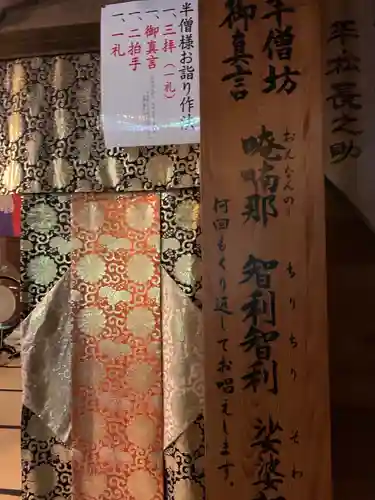 平松長之助
半僧坊
御真言
唵喃那 智利智利 娑婆
おんなんのー ちりちり そわ
何回もくり返してお唱えします。
半僧様お詣り作法
一、三拝(一礼)
一、御真言
一、二拍手
一、一礼